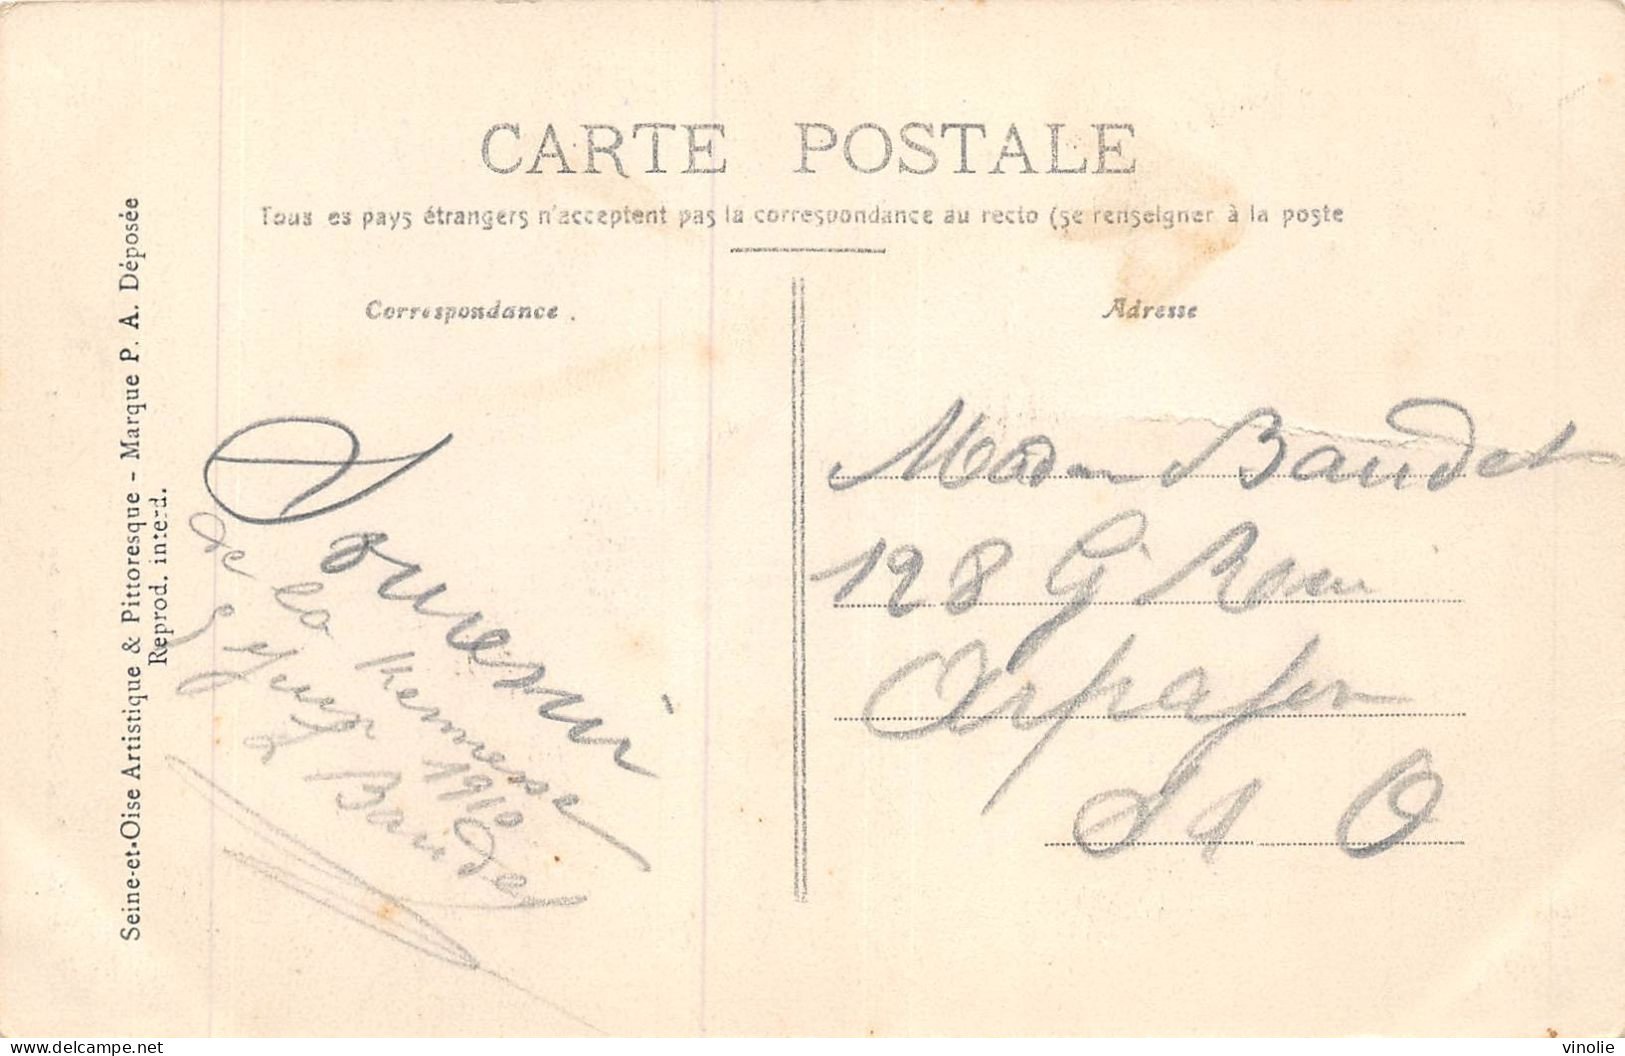 CARTE POSTALE
Tous es pays étrangers n'acceptent pas la correspondance au recto (se renseigner à la poste
Correspondance.
Adresse
Seine-et-Oise Artistique & Pittoresque - Marque P. A. Déposée
Reprod. interd.
Souvenir
de la Kermesse
5 Juin 1910
L Baudet
Madame Baudet
128 Gde Rue
Arpajon
S et O
delcampe.net
vinolie